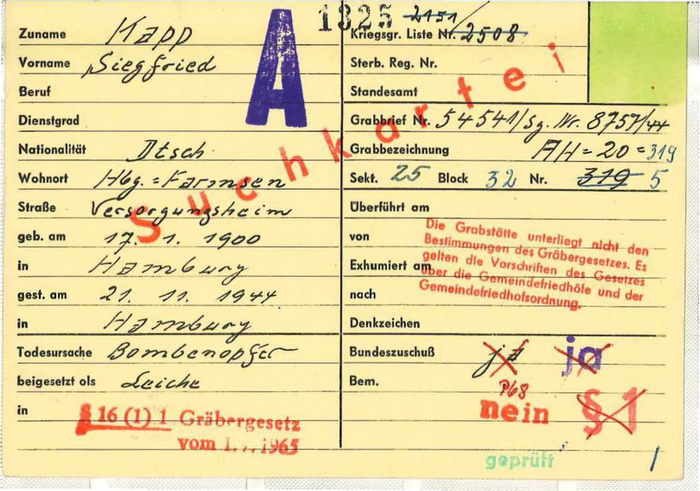 1325 2151/
Zuname Kapp
Vorname Siegfried
Beruf
Dienstgrad
Nationalität Dtsch.
Wohnort Hbg.=Farmsen
Straße Versorgungsheim
geb. am 17. 1. 1900
in Hamburg
gest. am 21. 11. 1944
in Hamburg
Todesursache Bombenopfer
beigesetzt als Leiche
in
§ 16 (1) 1 Gräbergesetz
vom 1.7.1965
A
Suchkartei
Kriegsgr. Liste Nr. 2508
Sterb. Reg. Nr.
Standesamt
Grabbrief Nr. 54541/Sg. Nr. 8757/44
Grabbezeichnung AH=20=319
Sekt. 25 Block 32 Nr. 319 5
Überführt am
von
Exhumiert am
nach
Die Grabstätte unterliegt nicht den
Bestimmungen des Gräbergesetzes. Es
gelten die Vorschriften des Gesetzes
über die Gemeindefriedhöfe und der
Gemeindefriedhofsordnung.
Denkzeichen
Bundeszuschuß ja ja
Bem.
P68
nein § 1
geprüft 1